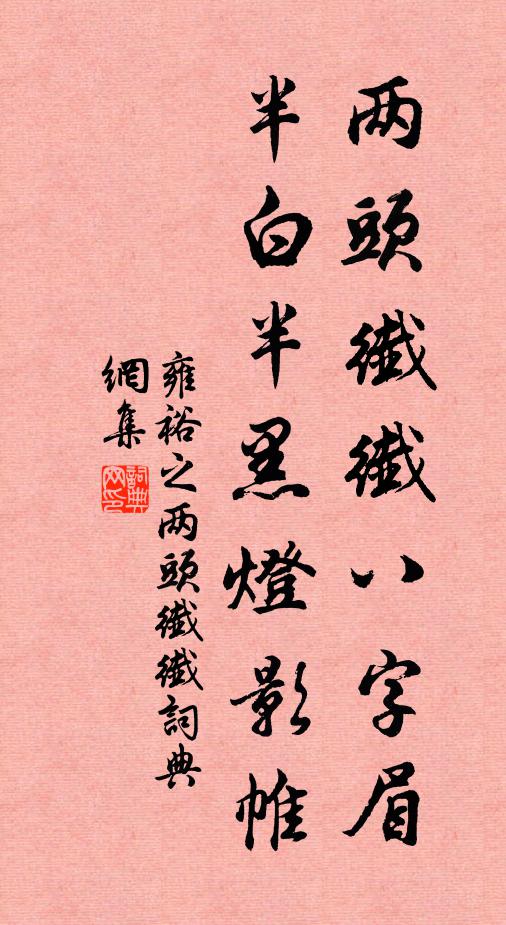 两頭纖纖八字眉
半白半黑燈影帷
雍裕之两頭纖纖詞典
網集
詞典
网印